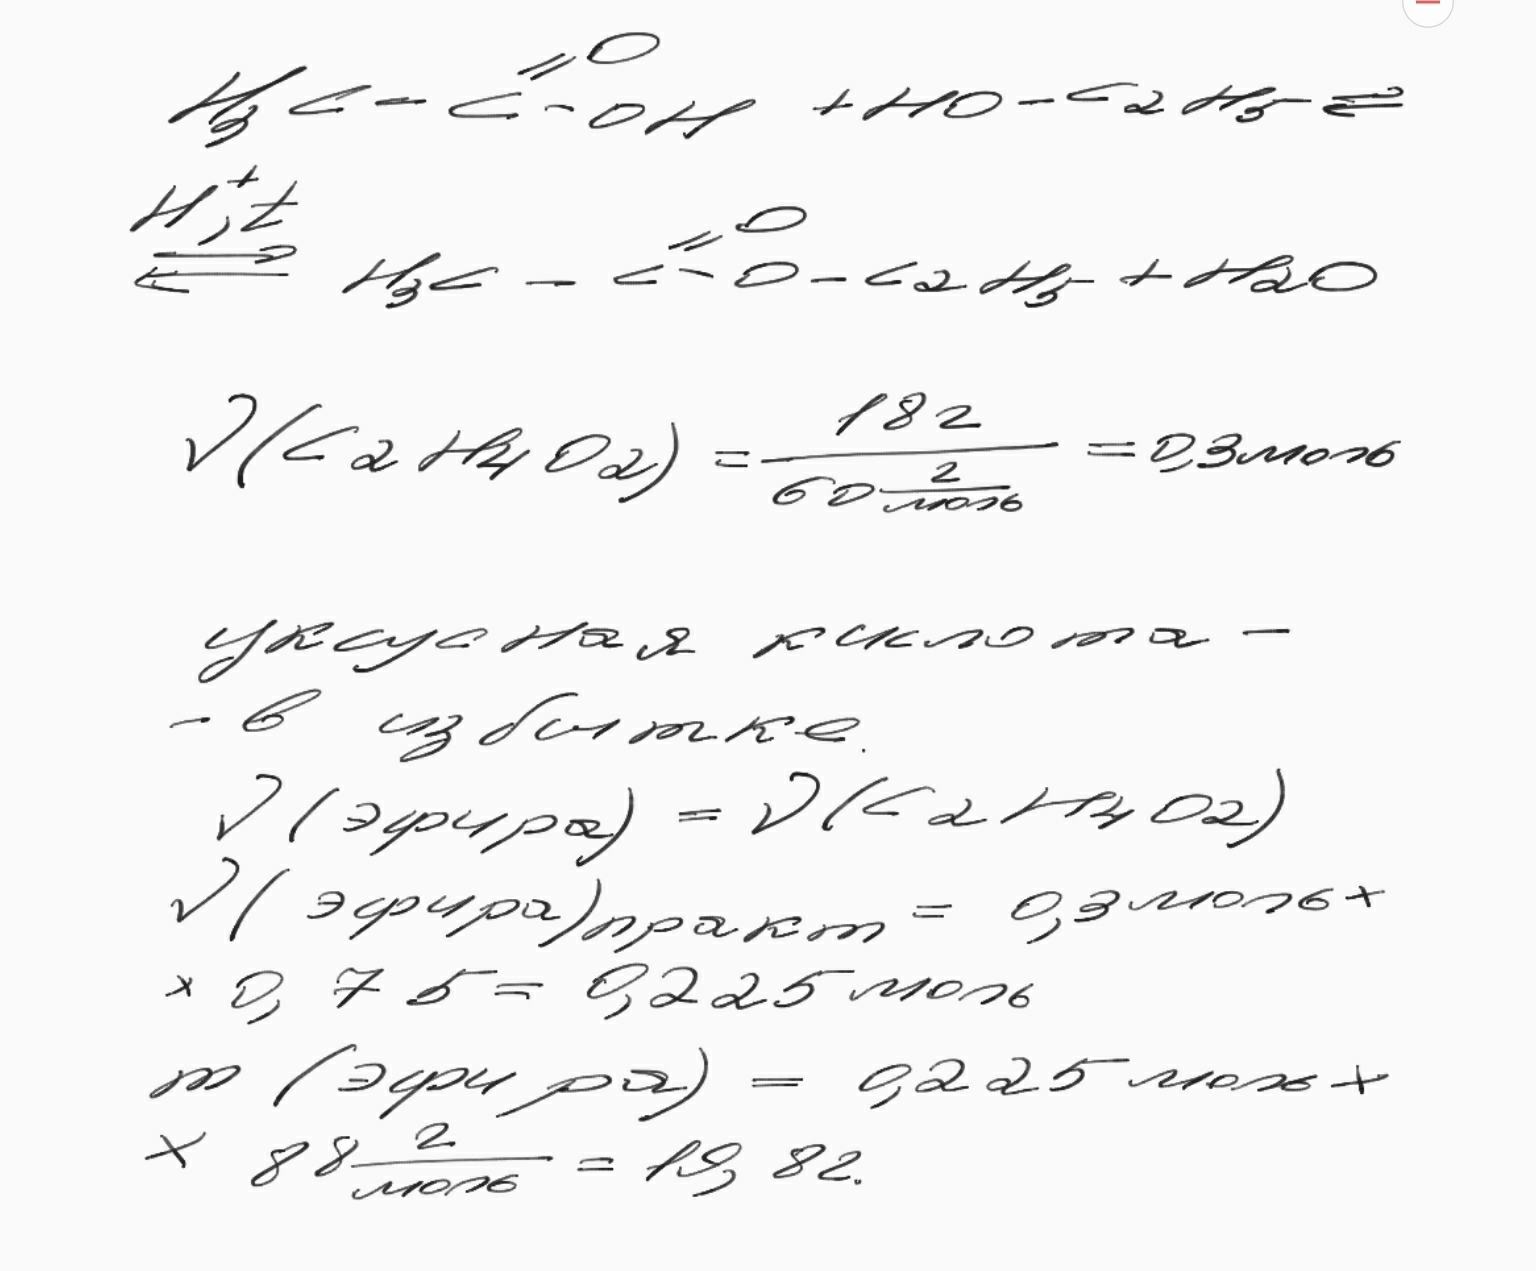 H₃C - C (=O) - OH + HO - C₂H₅ ⇌
H⁺, t
⇌ H₃C - C (=O) - O - C₂H₅ + H₂O
ν(C₂H₄O₂) = 18г / 60 г/моль = 0,3моль
уксусная кислота -
- в избитке.
ν(эфира) = ν(C₂H₄O₂)
ν(эфира)практ = 0,3моль×
× 0,75 = 0,225моль
m (эфира) = 0,225моль×
× 88 г/моль = 19,8г.